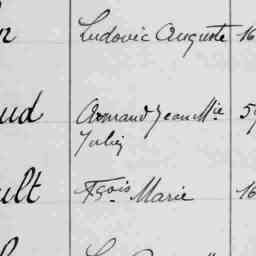 n Ludovic Auguste 16
ud Armand Jean M.ie 59
Julien
ult Fçois Marie 16